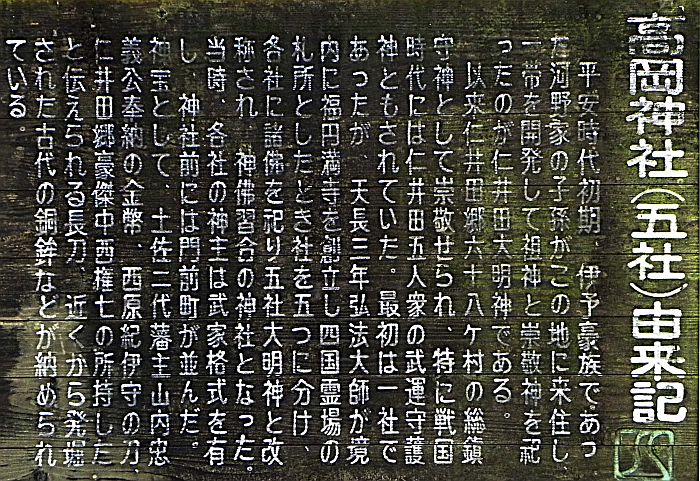 高岡神社(五社)由来記
平安時代初期、伊予豪族であっ
た河野家の子孫がこの地に来住し、
一帯を開発して祖神と崇敬神を祀
ったのが仁井田大明神である。
以来仁井田郷六十八ケ村の総鎮
守神として崇敬せられ、特に戦国
時代には仁井田五人衆の武運守護
神ともされていた。最初は一社で
あったが、天長三年弘法大師が境
内に福円満寺を創立し四国霊場の
札所としたとき社を五つに分け、
各社に諸佛を祀り五社大明神と改
称され、神佛習合の神社となった。
当時、各社の神主は武家格式を有
し、神社前には門前町が並んだ。
神宝として、土佐二代藩主山内忠
義公奉納の金幣、西原紀伊守の刀、
仁井田郷豪傑中西権七の所持した
と伝えられる長刀、近くから発掘
された古代の銅鉾などが納められ
ている。